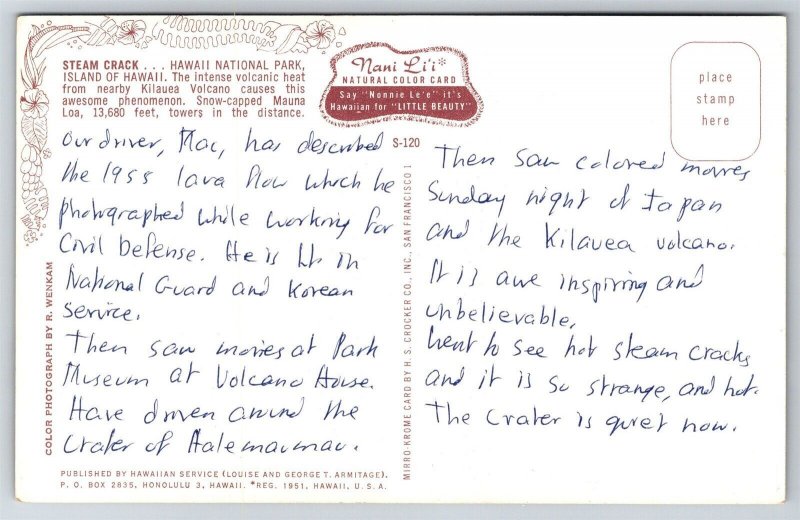 STEAM CRACK . . . HAWAII NATIONAL PARK,
ISLAND OF HAWAII. The intense volcanic heat
from nearby Kilauea Volcano causes this
awesome phenomenon. Snow-capped Mauna
Loa, 13,680 feet, towers in the distance.
Nani Li'i*
NATURAL COLOR CARD
Say "Nonnie Le'e" it's
Hawaiian for "LITTLE BEAUTY"
place
stamp
here
S-120
Our driver, Mac, has described
the 1955 lava flow which he
photographed while working for
Civil Defense. He is Lt. in
National Guard and Korean
Service.
Then saw movies at Park
Museum at Volcano House.
Have driven around the
Crater of Halemaumau.
Then saw colored movies
Sunday night of Japan
and the Kilauea volcano.
It is awe inspiring and
unbelievable.
Went to see hot steam cracks
and it is so strange, and hot.
The Crater is quiet now.
COLOR PHOTOGRAPH BY R. WENKAM
MIRRO-KROME CARD BY H. S. CROCKER CO., INC., SAN FRANCISCO 1
PUBLISHED BY HAWAIIAN SERVICE (LOUISE AND GEORGE T. ARMITAGE),
P. O. BOX 2835, HONOLULU 3, HAWAII. *REG. 1951, HAWAII, U.S.A.